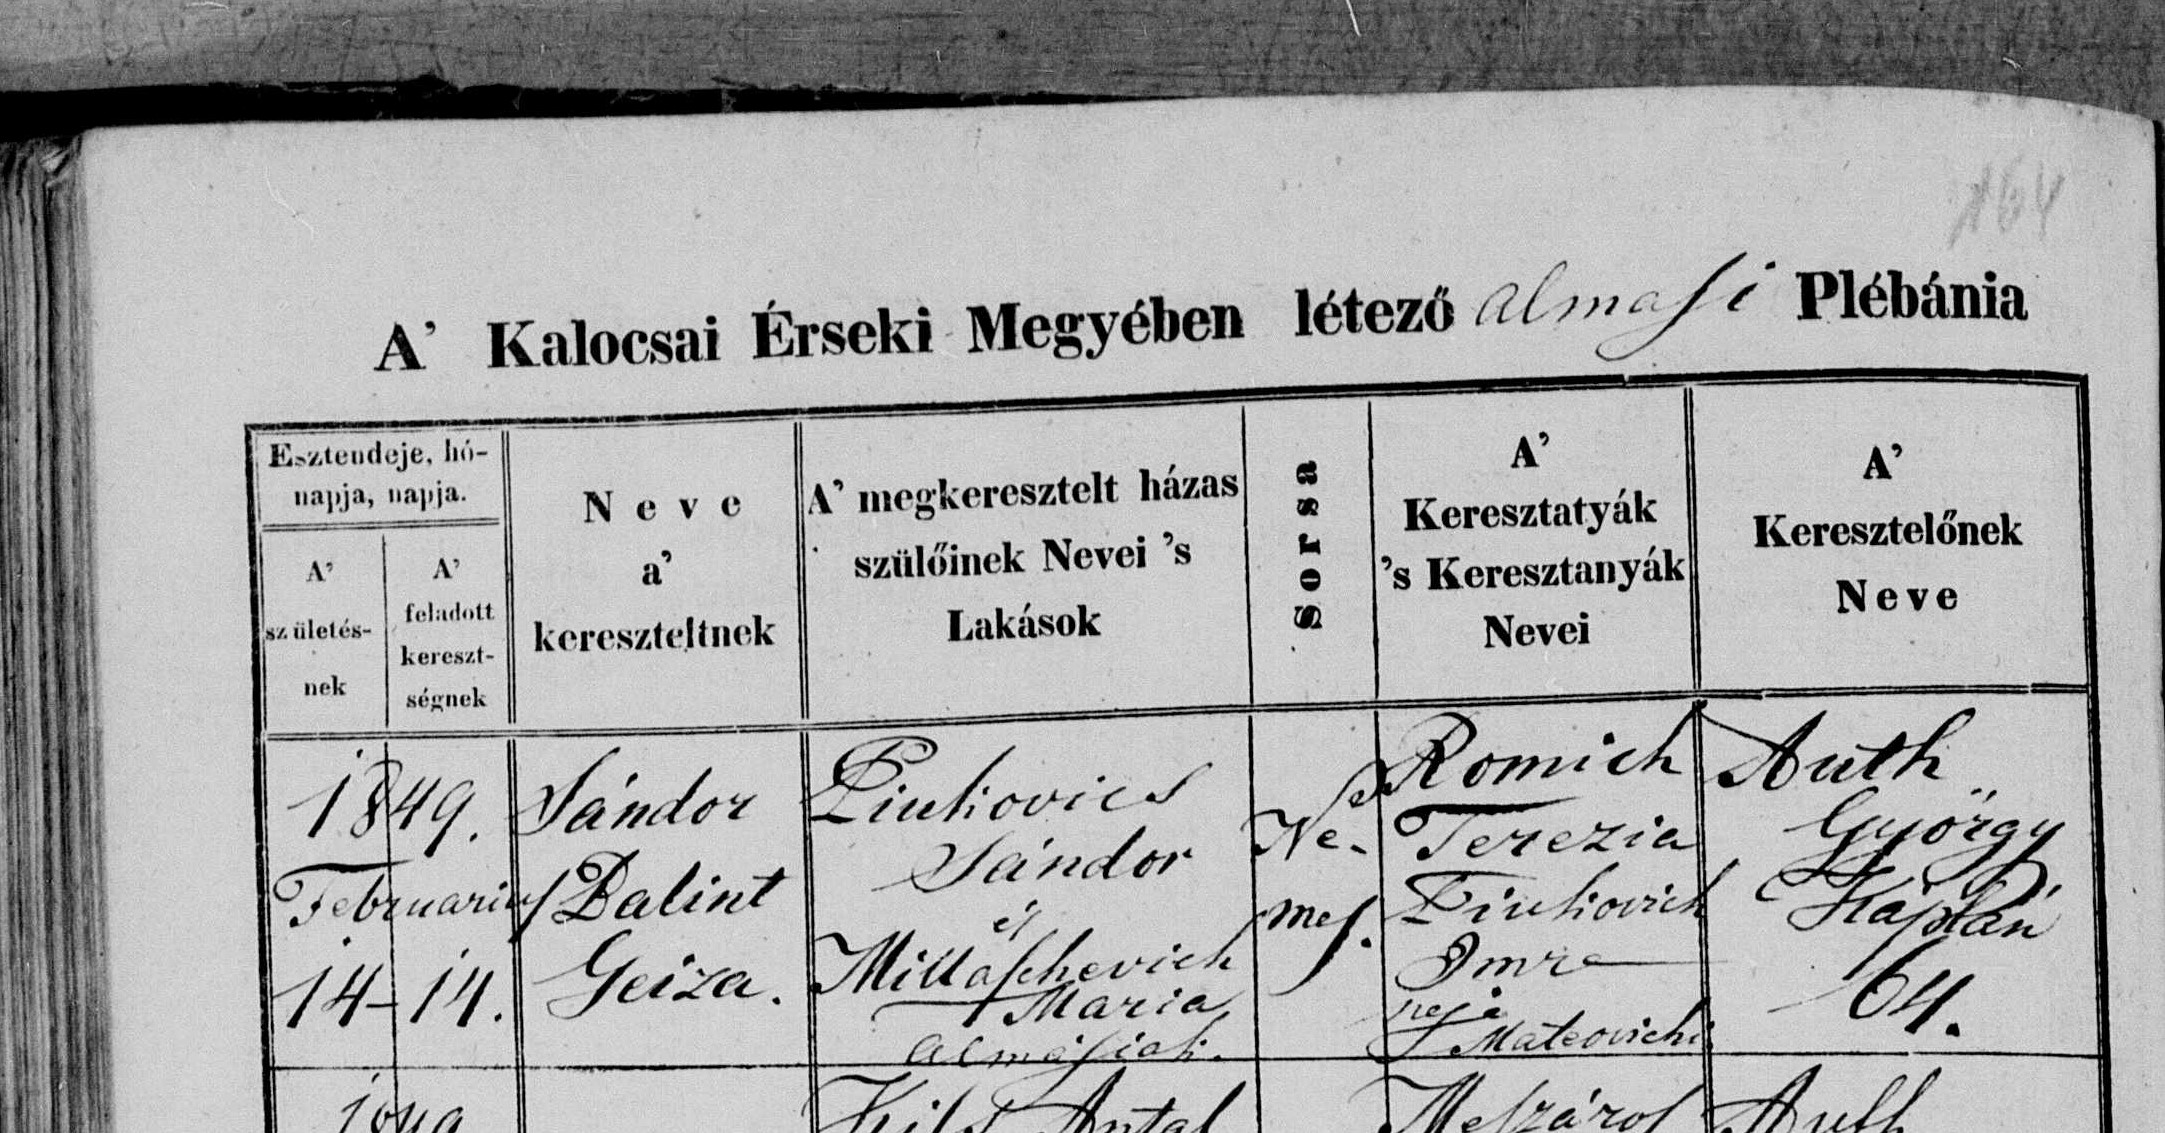 164
A' Kalocsai Érseki Megyében létező almasi Plébánia
Esztendeje, hó-
napja, napja.
A'
születés-
nek
A'
feladott
kereszt-
ségnek
Neve
a'
kereszteltnek
A' megkeresztelt házas
szülőinek Nevei 's
Lakások
Sorsa
A'
Keresztatyák
's Keresztanyák
Nevei
A'
Keresztelőnek
Neve
1849.
Februarius
14-14.
Sándor
Balint
Geiza.
Piukovics
Sándor
és
Millaschevich
Maria
almásiak.
Ne-
mes.
Romich
Terezia
Piukovich
Imre
neje
Mateovich
Auth
György
Káplán
64.
1849
Antal
Meszáros
Auth